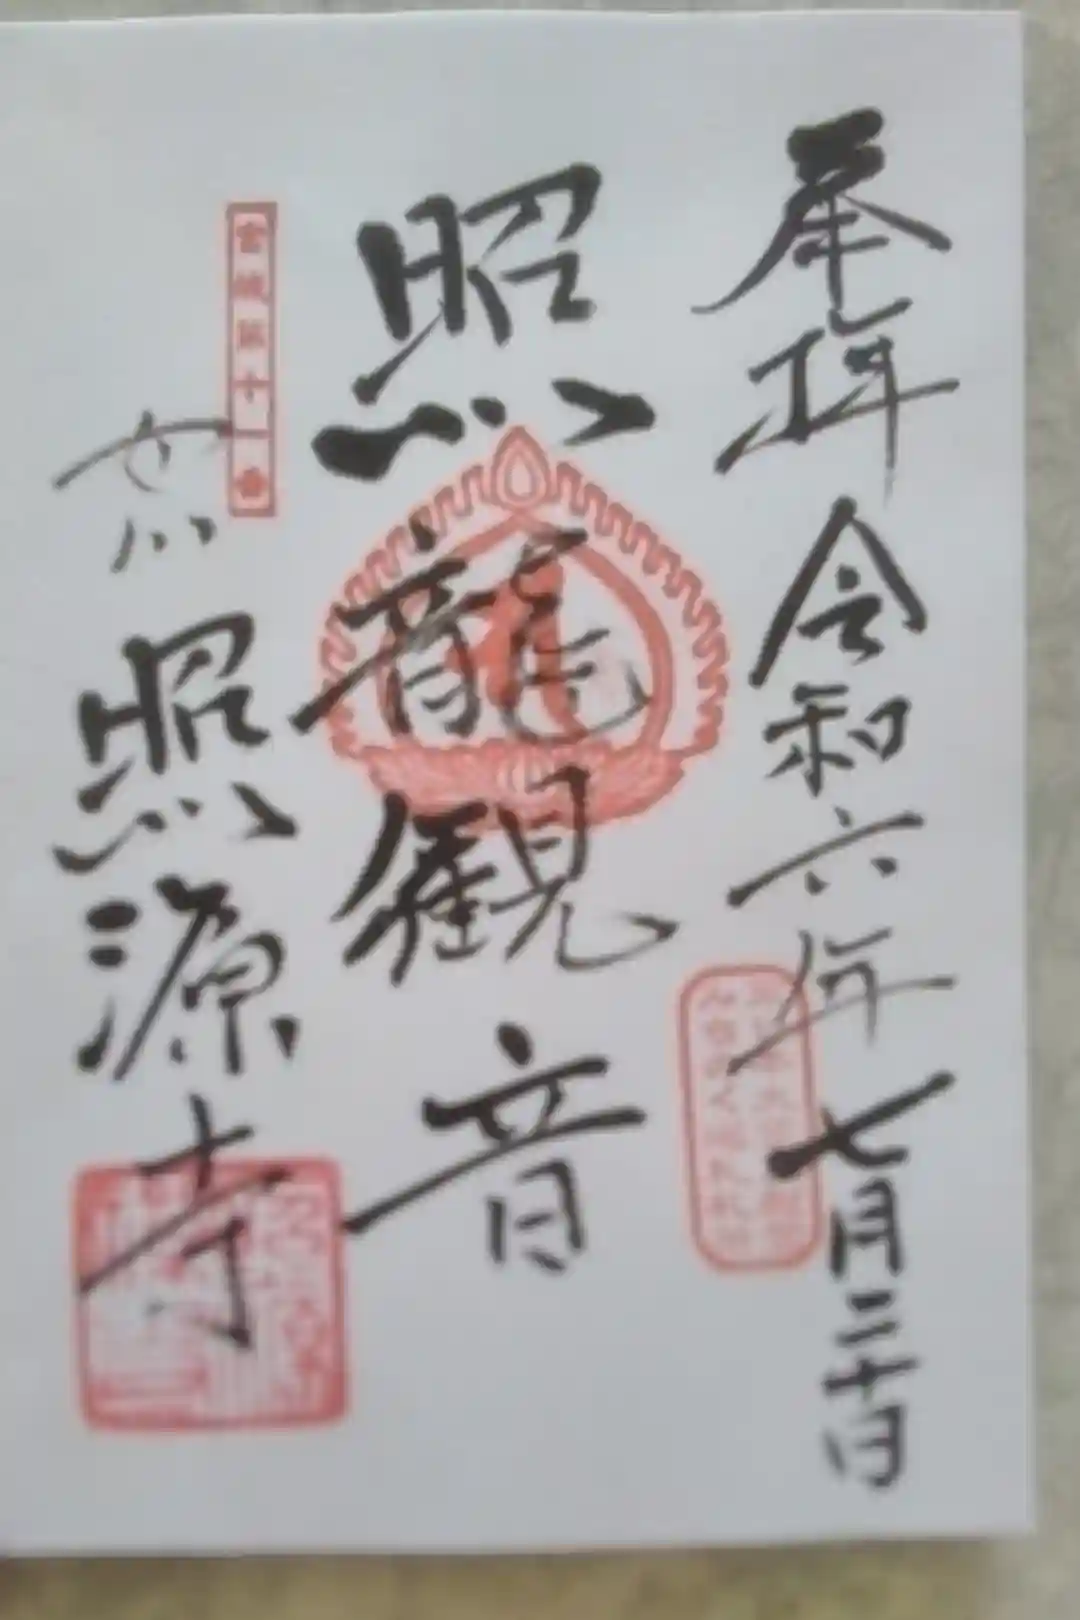 奉拝 令和六年七月二十日
照龍観音
宮城第十一番
照源寺